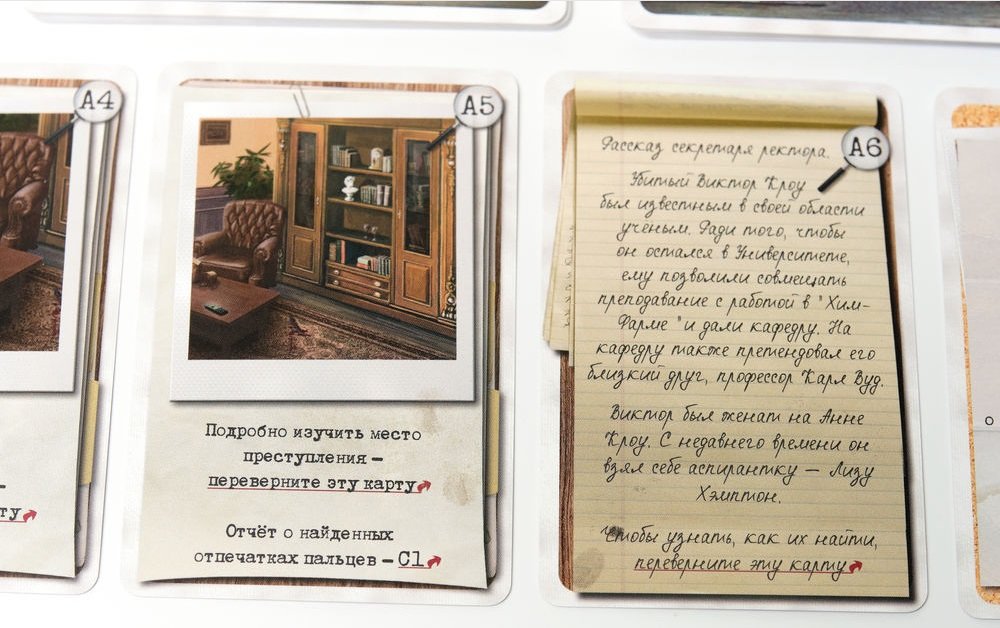 A4
ту
A5
Подробно изучить место
преступления –
переверните эту карту
Отчёт о найденных
отпечатках пальцев – C1
A6
Рассказ секретаря ректора.
Убитый Виктор Кроу
был известным в своей области
учёным. Ради того, чтобы
он остался в Университете,
ему позволили совмещать
преподавание с работой в "Хим-
Фарме" и дали кафедру. На
кафедру также претендовал его
близкий друг, профессор Карл Вуд.
Виктор был женат на Анне
Кроу. С недавнего времени он
взял себе аспирантку – Лизу
Хэмптон.
Чтобы узнать, как их найти,
переверните эту карту